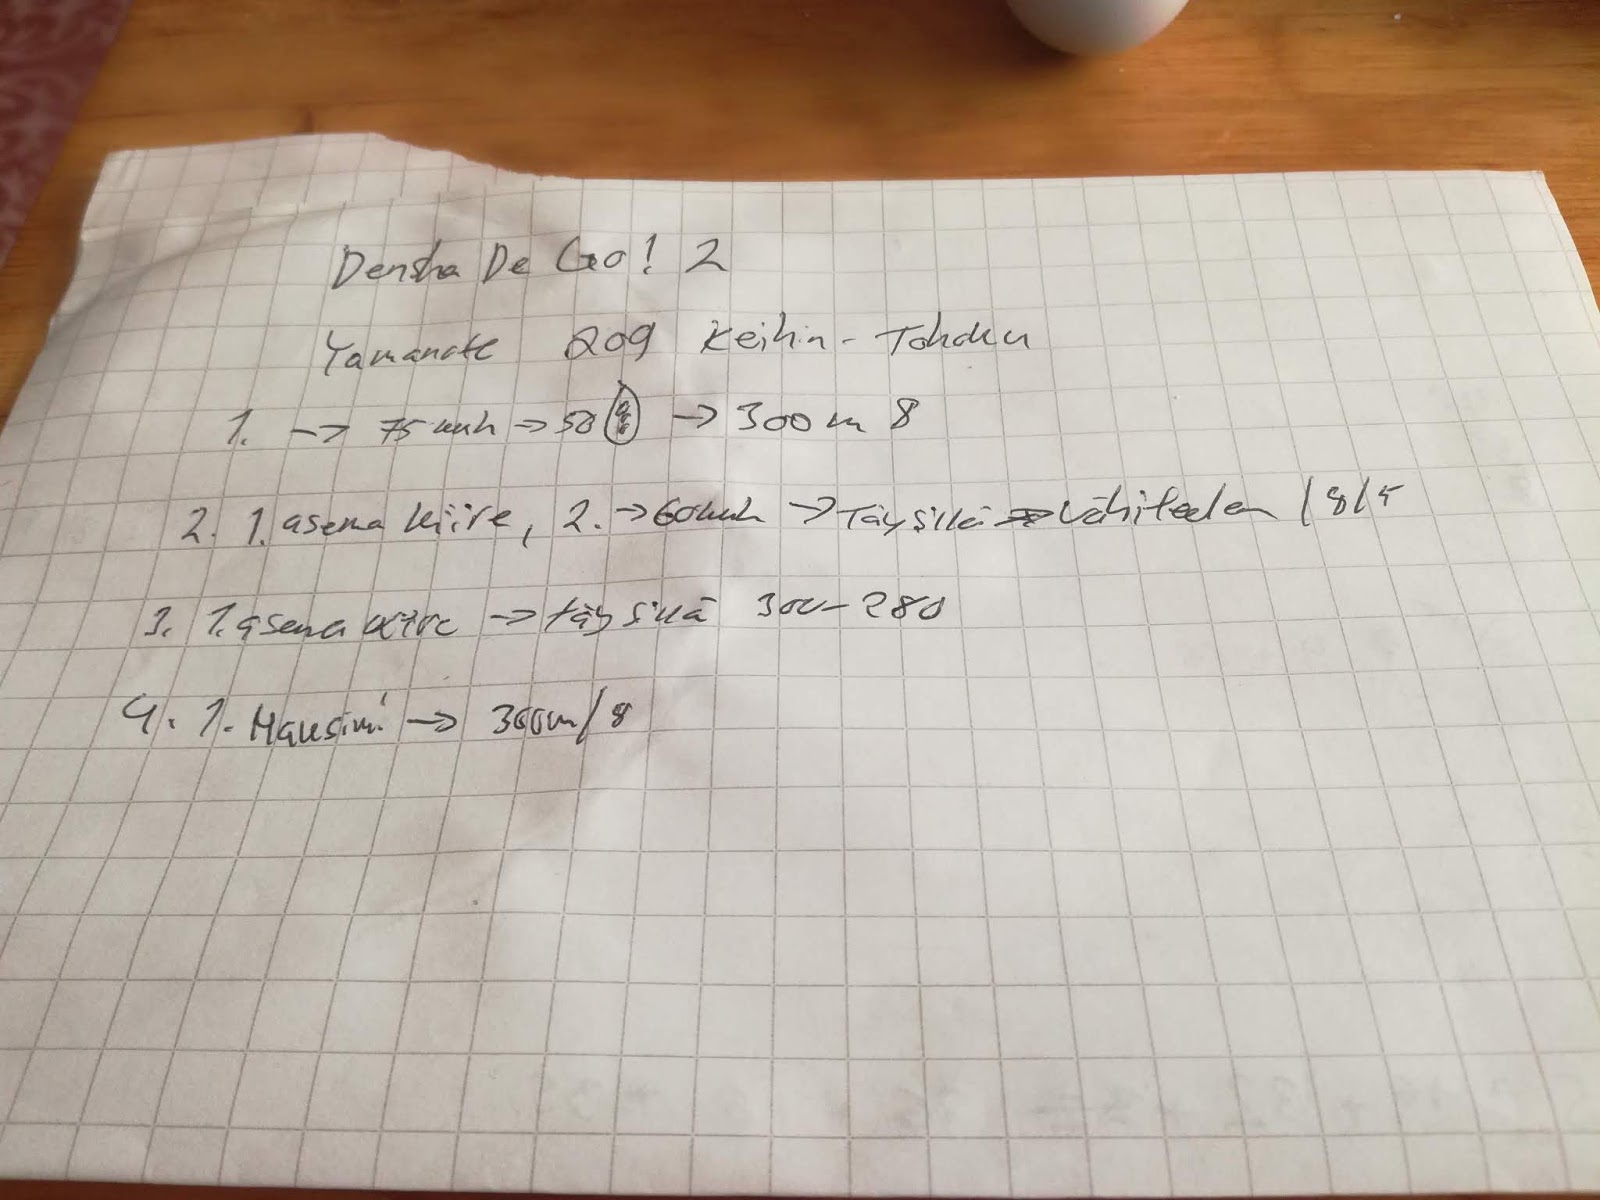 Densha De Go! 2
Yamanote 209 Keihin-Tohoku
1. → 75 kmh → 50 → 300m 8
2. 1. asema kiire, 2. → 60kmh → Täysillä → Vähitellen /8/5
3. 1. asema kiire → täysillä 300-280
4. 1. Maksimi → 300m/8